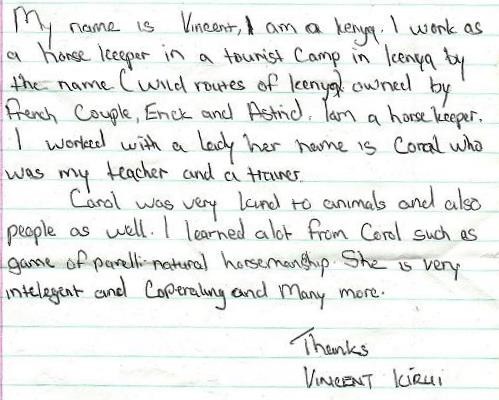 My name is Vincent, I am a kenya. I work as
a horse keeper in a tourist camp in kenya by
the name (wild routes of kenya) owned by
french Couple, Erick and Astrid. Iam a horse keeper.
I worked with a lady her name is Coral who
was my teacher and a trainer.
Carol was very kind to animals and also
people as well. I learned alot from Corol such as
game of parelli natural horsemanship. She is very
intelegent and and Many more.
Thanks
VINCENT KIRUI